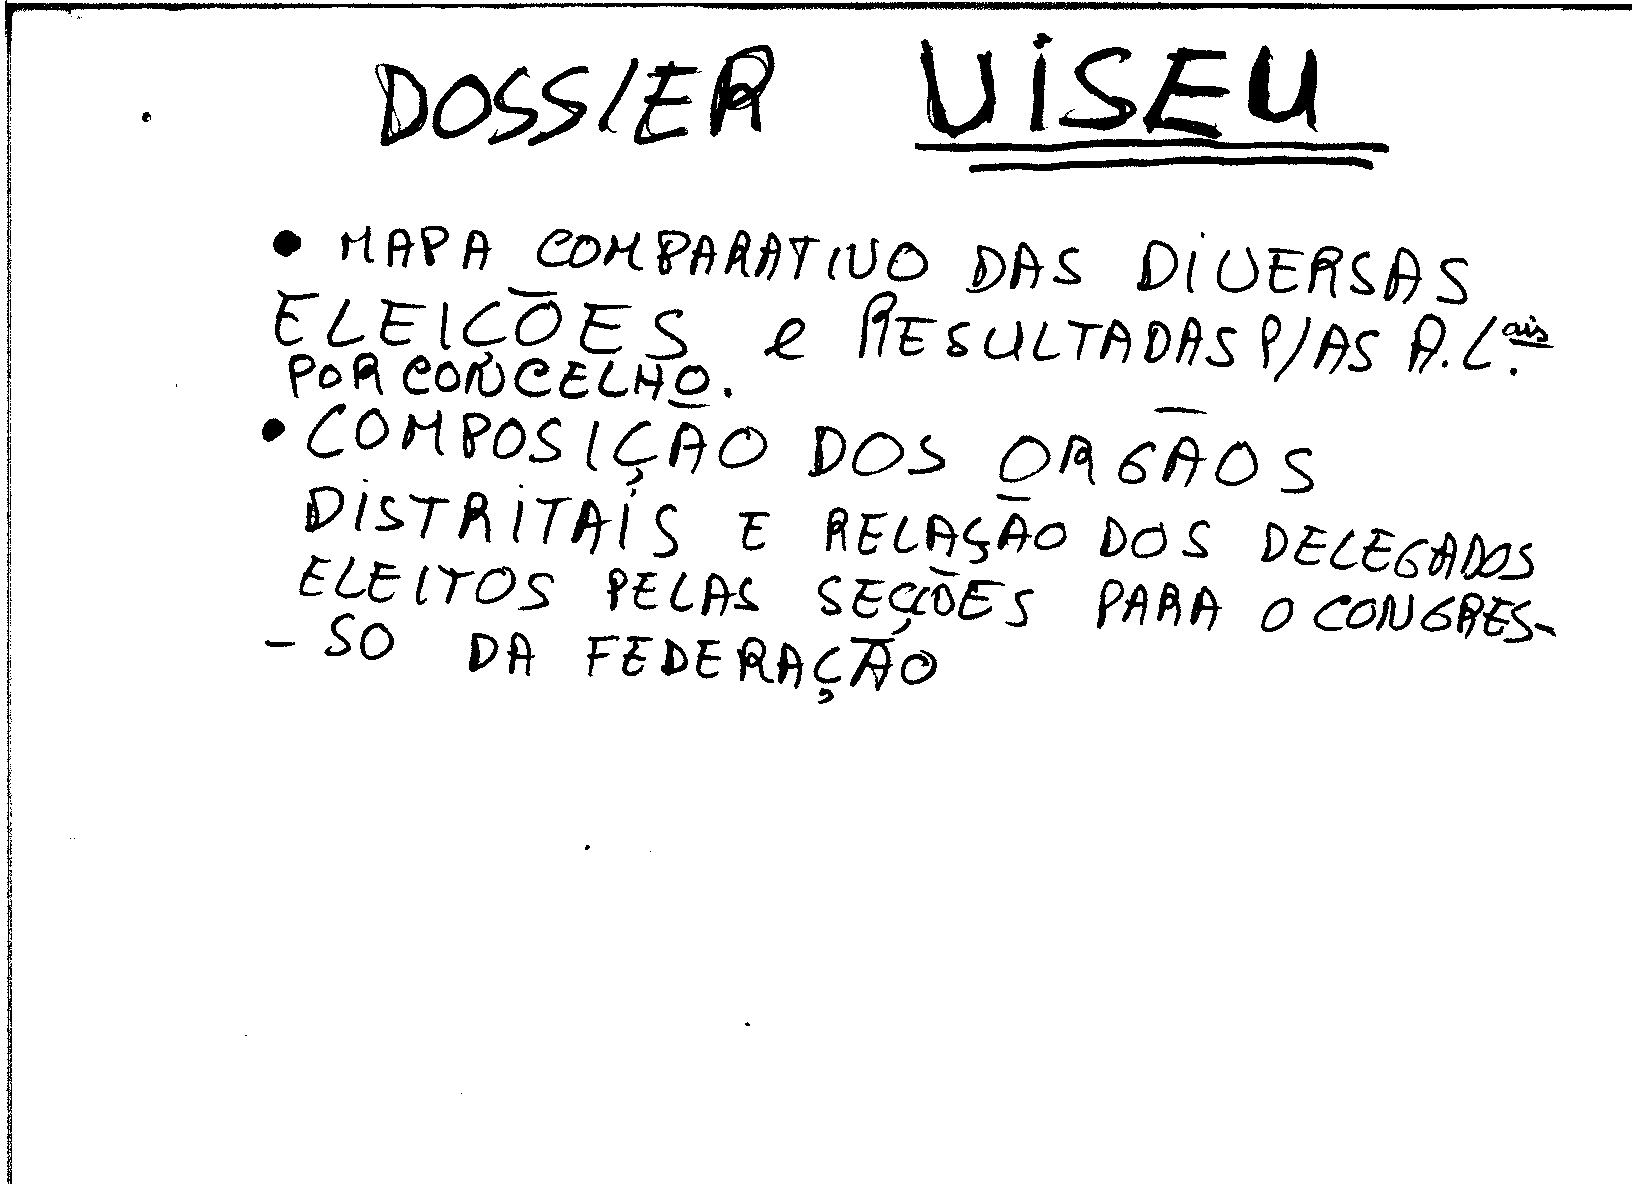 DOSSIER VISEU
• MAPA COMPARATIVO DAS DIVERSAS
ELEIÇÕES e RESULTADAS P/AS A.L.ais
POR CONCELHO.
• COMPOSIÇÃO DOS ORGÃOS
DISTRITAIS E RELAÇÃO DOS DELEGADOS
ELEITOS PELAS SECÇÕES PARA O CONGRES-
- SO DA FEDERAÇÃO